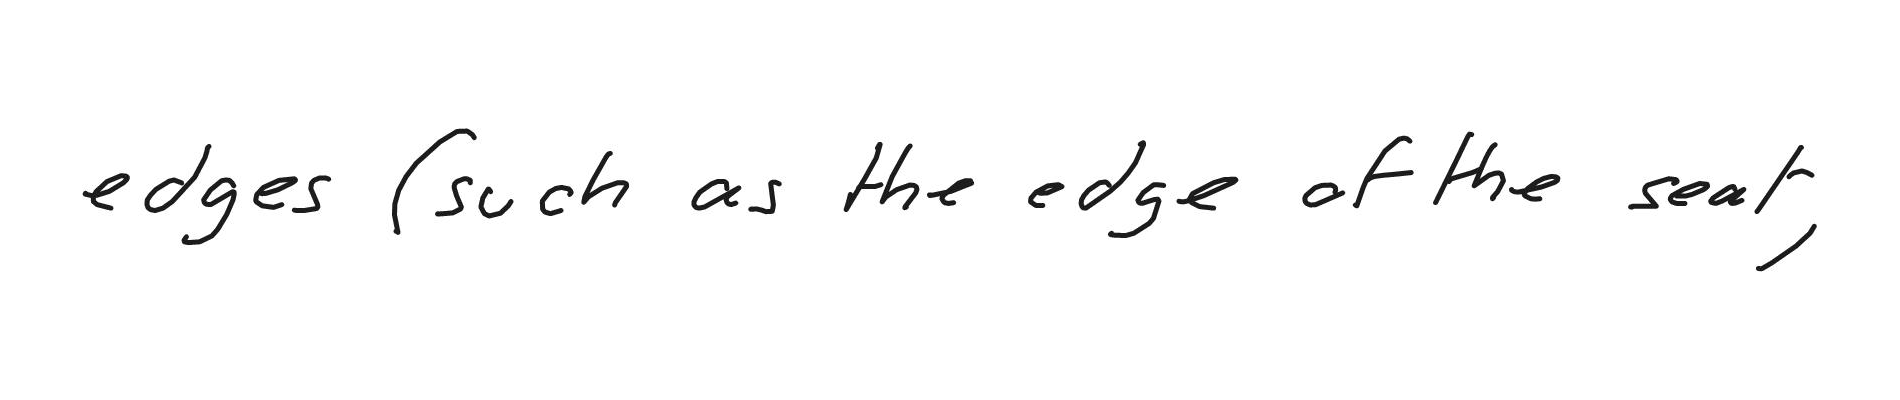 edges (such as the edge of the seat,